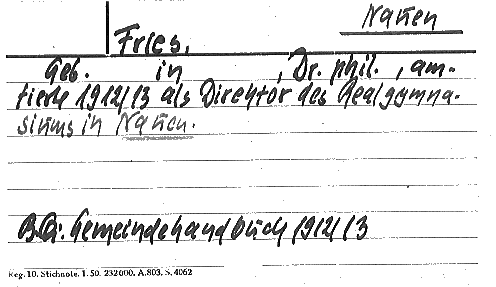 Nauen
Fries,
Geb. in , Dr. phil. , am-
tierte 1912/13 als Direktor des Realgymna-
siums in Nauen.
B.Qu. Gemeindehandbuch 1912/13
Reg. 10. Stichnote. 1. 50. 232000. A. 803. S. 4062